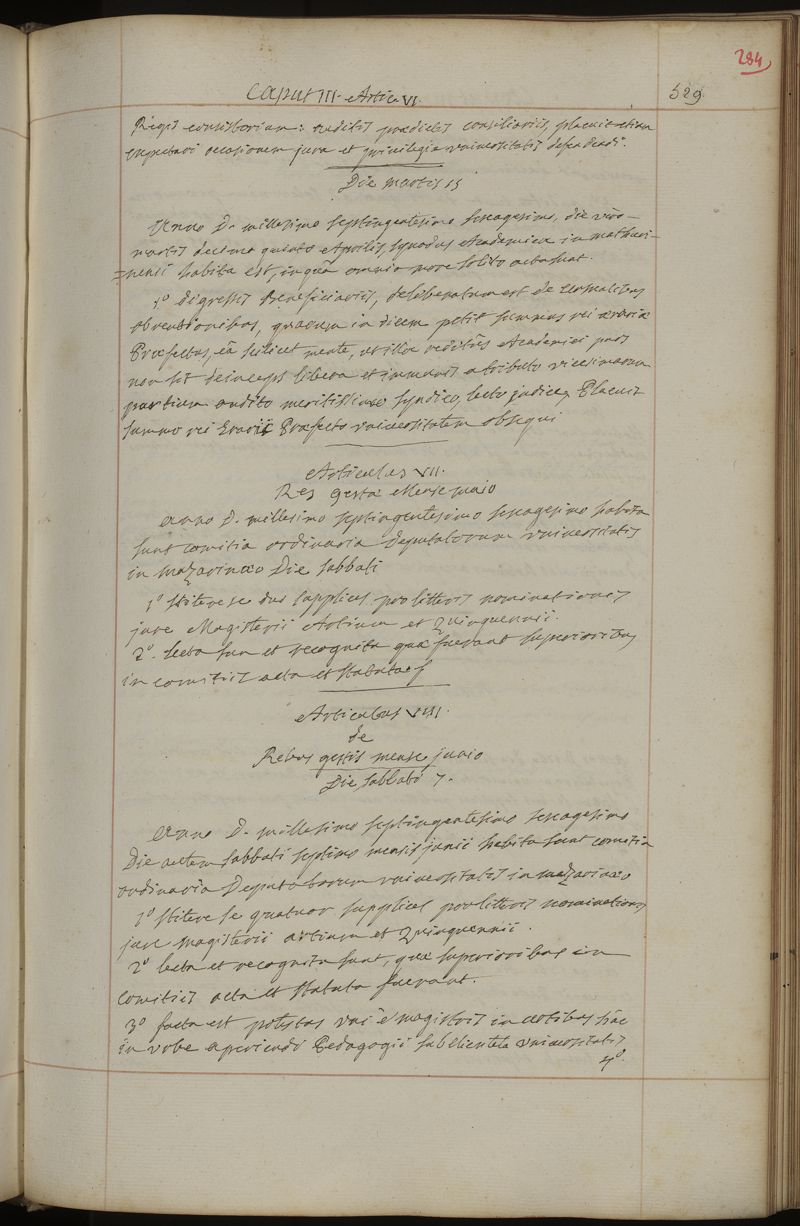 284
Caput III. Artic. VI. 529.
Regis consistorium: auditis praedictis consiliariis, placuit etiam
expectari occasionem jura et privilegia universitatis defendendi.
Die martis 15
Anno D. millesimo septingentesimo sexagesimo, die vero
martis decimo quinto Aprilis, synodus Academica in mathuri-
=nensi habita est, in quâ omnia more solito acta sunt.
1º digressis Beneficiariis, deliberatum est de
obventionibus, quarum indicem petit summus rei aerariae
Praefectus, eâ scilicet mente, ut illa reditûs Academici pars
non sit deinceps libera et immunis a tributo vicesimarum
partium audito meritissimo syndico, lecto judice, Placuit
summo rei Erarii Praefecto universitatem obsequi
Articulus VII.
Res gesta Mense maio
Anno D. millesimo septingentesimo sexagesimo habita
sunt comitia ordinaria Deputatorum universitatis
in mazarinaeo Die sabbati
1º stitere se duo supplices pro litteris nominationis
jure Magisterii Artium et Quinquennii.
2º. lecta sun et recognita quae fuerant superioribus
in comitiis acta et statuta
Articulus VIII.
de
Rebus gestis mense junio
Die sabbati 7.
Anno D. millesimo septingentesimo sexagesimo
Die autem sabbati septimo mensis junii habita sunt comitia
ordinaria Deputatorum universitatis in mazarinaeo
1º stitere se quatuor supplices pro litteris nominationis
jure magisterii artium et Quinquennii.
2º lecta et recognita sunt, quae superioribus in
comitiis acta et statuta fuerant.
3º facta est potestas uni è magistris in artibus hâc
in urbe aperiendi Pedagogii sub clientela universitatis
4º.